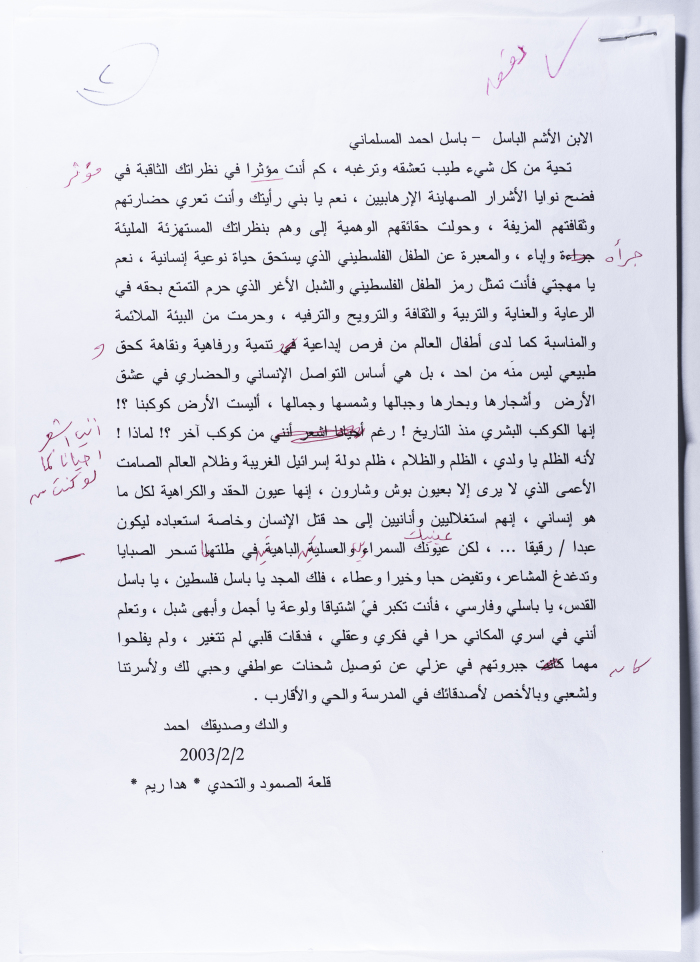 ٢
الابن الأشم الباسل – باسل احمد المسلماني
تحية من كل شيء طيب تعشقه وترغبه ، كم أنت مؤثرا في نظراتك الثاقبة في
مؤثر
فضح نوايا الأشرار الصهاينة الإرهابيين ، نعم يا بني رأيتك وأنت تعري حضارتهم
وثقافتهم المزيفة ، وحولت حقائقهم الوهمية إلى وهم بنظراتك المستهزئة المليئة
جراءة وإباء ، والمعبرة عن الطفل الفلسطيني الذي يستحق حياة نوعية إنسانية ، نعم
جرأه
يا مهجتي فأنت تمثل رمز الطفل الفلسطيني والشبل الأغر الذي حرم التمتع بحقه في
الرعاية والعناية والتربية والثقافة والترويح والترفيه ، وحرمت من البيئة الملائمة
والمناسبة كما لدى أطفال العالم من فرص إبداعية في تنمية ورفاهية ونقاهة كحق
و
طبيعي ليس منه من احد ، بل هي أساس التواصل الإنساني والحضاري في عشق
الأرض وأشجارها وبحارها وجبالها وشمسها وجمالها ، أليست الأرض كوكبنا ؟!
إنها الكوكب البشري منذ التاريخ ! رغم أحيانا اشعر أنني من كوكب آخر ؟! لماذا !
انني اشعر
احيانا كما
لو كنت من
لأنه الظلم يا ولدي ، الظلم والظلام ، ظلم دولة إسرائيل الغريبة وظلام العالم الصامت
الأعمى الذي لا يرى إلا بعيون بوش وشارون ، إنها عيون الحقد والكراهية لكل ما
هو إنساني ، إنهم استغلاليين وأنانيين إلى حد قتل الإنسان وخاصة استعباده ليكون
عينيك
عبدا / رقيقا ... ، لكن عيونك السمراء والعسلية الباهية في طلتها تسحر الصبايا
وتدغدغ المشاعر، وتفيض حبا وخيرا وعطاء ، فلك المجد يا باسل فلسطين ، يا باسل
القدس، يا باسلي وفارسي ، فأنت تكبر فيّ اشتياقا ولوعة يا أجمل وأبهى شبل ، وتعلم
أنني في اسري المكاني حرا في فكري وعقلي ، فدقات قلبي لم تتغير ، ولم يفلحوا
مهما كانت جبروتهم في عزلي عن توصيل شحنات عواطفي وحبي لك ولأسرتنا
كان
ولشعبي وبالأخص لأصدقائك في المدرسة والحي والأقارب .
والدك وصديقك احمد
2003/2/2
قلعة الصمود والتحدي * هدا ريم *